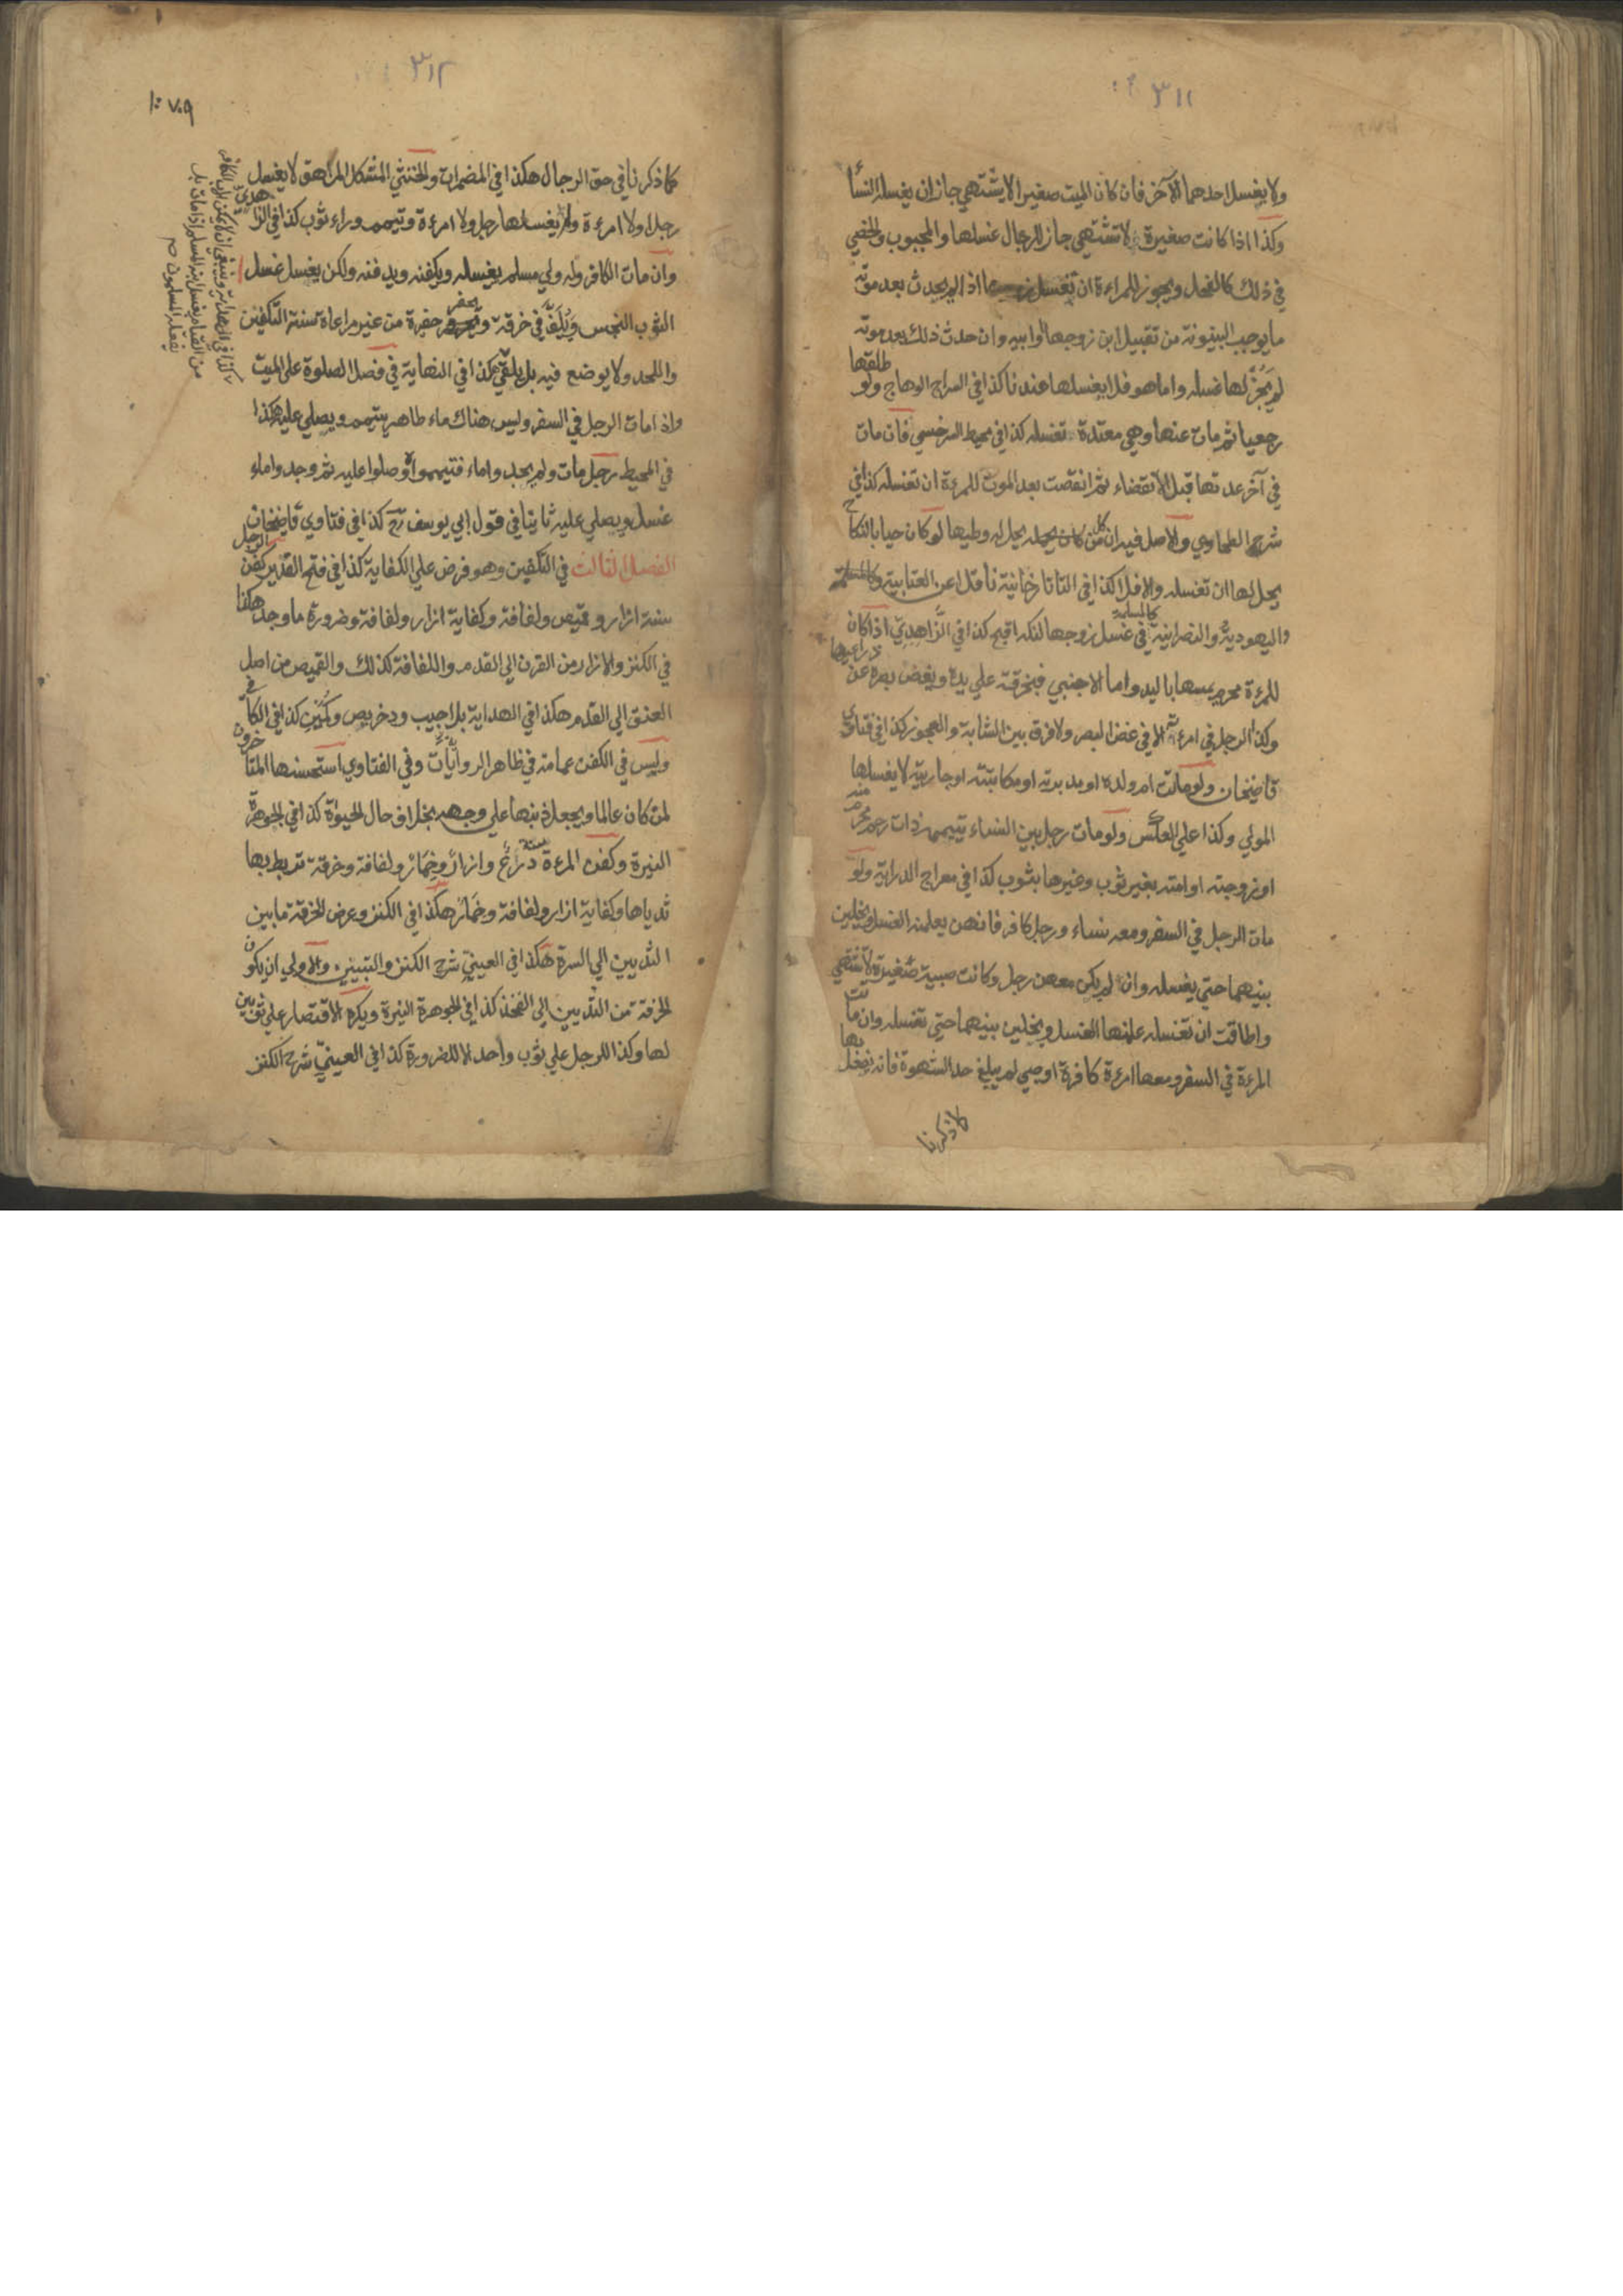 ٣١١
ولا يغسل احدهما الآخر فان كان الميت صغيرا لا يشتهي جاز ان يغسله النسأ
وكذا اذا كانت صغيرة لا تشتهي جاز للرجال غسلها والمجبوب والخصي
في ذلك كالفحل ويجوز للمراءة ان تغسل زوجها اذا لم يحدث بعد موته
ما يوجب البينونة من تقبيل ابن زوجها او ابيه وان حدث ذلك بعد موته
لم يجز لها غسله واما هو فلا يغسلها عندنا كذا في السراج الوهاج ولو طلقها
رجعيا ثم مات عنها وهي معتدة تغسله كذا في محيط السرخسي فان مات
في آخر عدتها قبل الانقضاء ثم انقضت بعد الموت للمرءة ان تغسله كذا في
شرح الطحاوي والاصل فيه ان كل من يحل له وطيها لو كان حيا بالنكاح
يحل لها ان تغسله والا فلا كذا في التاتارخانية ناقلا عن العتابية
واليهودية والنصرانية كالمسلمة في غسل زوجها لنكه اقبح كذا في الزاهدي اذا كان
للمرءة محرم يمسها باليد واما الاجنبي فبخرقة علي يده ويغض بصره عن ذراعيها
وكذا الرجل في امرءته الا في غض البصر ولا فرق بين الشابة والعجوز كذا في فتاوي
قاضيخان ولو ماتت ام ولده او مدبرته او مكاتبته او جاريته لا يغسلها
المولي وكذا علي العكس ولو مات رجل بين النساء تيممه ذات رحم محرم منه
او زوجته او امته بغير ثوب وغيرها بثوب كذا في معراج الدراية ولو
مات الرجل في السفر ومعه نساء ورجل كافر فانهن يعلمنه الغسل ويخلين
بينهما حتي يغسله وان لم يكن معهن رجل وكانت صبية صغيرة لا تشتهي
واطاقت ان تغسله علمنها الغسل ويخلين بينهما حتي تغسله وان ماتت
المرءة في السفر ومعها امرءة كافرة او صبي لم يبلغ حد الشهوة فانه يفعل بها
كما ذكرنا
٣١٢
١٠٧٠٩
كما ذكرنا في حق الرجال هكذا في المضمرات والخنثي المشكل المراهق لا يغسل
رجلا ولا امرءة ولا يغسلها رجل ولا امرءة وتيمم وراء ثوب كذا في الزاهدي
وان مات الكافر وله ولي مسلم يغسله ويكفنه ويدفنه ولكن يغسل غسل
الثوب النجس ويلف في خرقة ويحفر حفرة من غير مراعاة سنة التكفين
واللحد ولا يوضع فيه بل يلقي هكذا في النهاية في فصل الصلوة علي الميت
واذا مات الرجل في السفر وليس هناك ماء طاهر يتيمم ويصلي عليه هكذا
في المحيط رجل مات ولم يجدوا ماء فتيمموا وصلوا عليه ثم وجدوا ماء
غسل ويصلي عليه ثانيا في قول ابي يوسف رح كذا في فتاوي قاضيخان
الفصل الثالث في التكفين وهو فرض علي الكفاية كذا في فتح القدير كفن الرجل
سنة ازار وقميص ولفافة وكفاية ازار ولفافة وضرورة ما وجد هكذا
في الكنز والازار من القرن الي القدم واللفافة كذلك والقميص من اصل
العنق الي القدم هكذا في الهداية بلا جيب ودخريص وكمين كذا في الكافي
وليس في الكفن عمامة في ظاهر الروايات وفي الفتاوي استحسنها المتاخرون
لمن كان عالما ويجعل ذنبها علي وجهه بخلاف حال الحيوة كذا في الجوهرة
النيرة وكفن المرءة سنة درع وازار وخمار ولفافة وخرقة تربط بها
ثدياها وكفاية ازار ولفافة وخمار هكذا في الكنز وعرض الخرقة ما بين
الثديين الي السرة هكذا في العيني شرح الكنز والتبيين والاولي ان يكون
الخرقة من الثديين الي الفخذ كذا في الجوهرة النيرة ويكره الاقتصار علي ثوبين
لها وكذا للرجل علي ثوب واحد الا للضرورة كذا في العيني شرح الكنز